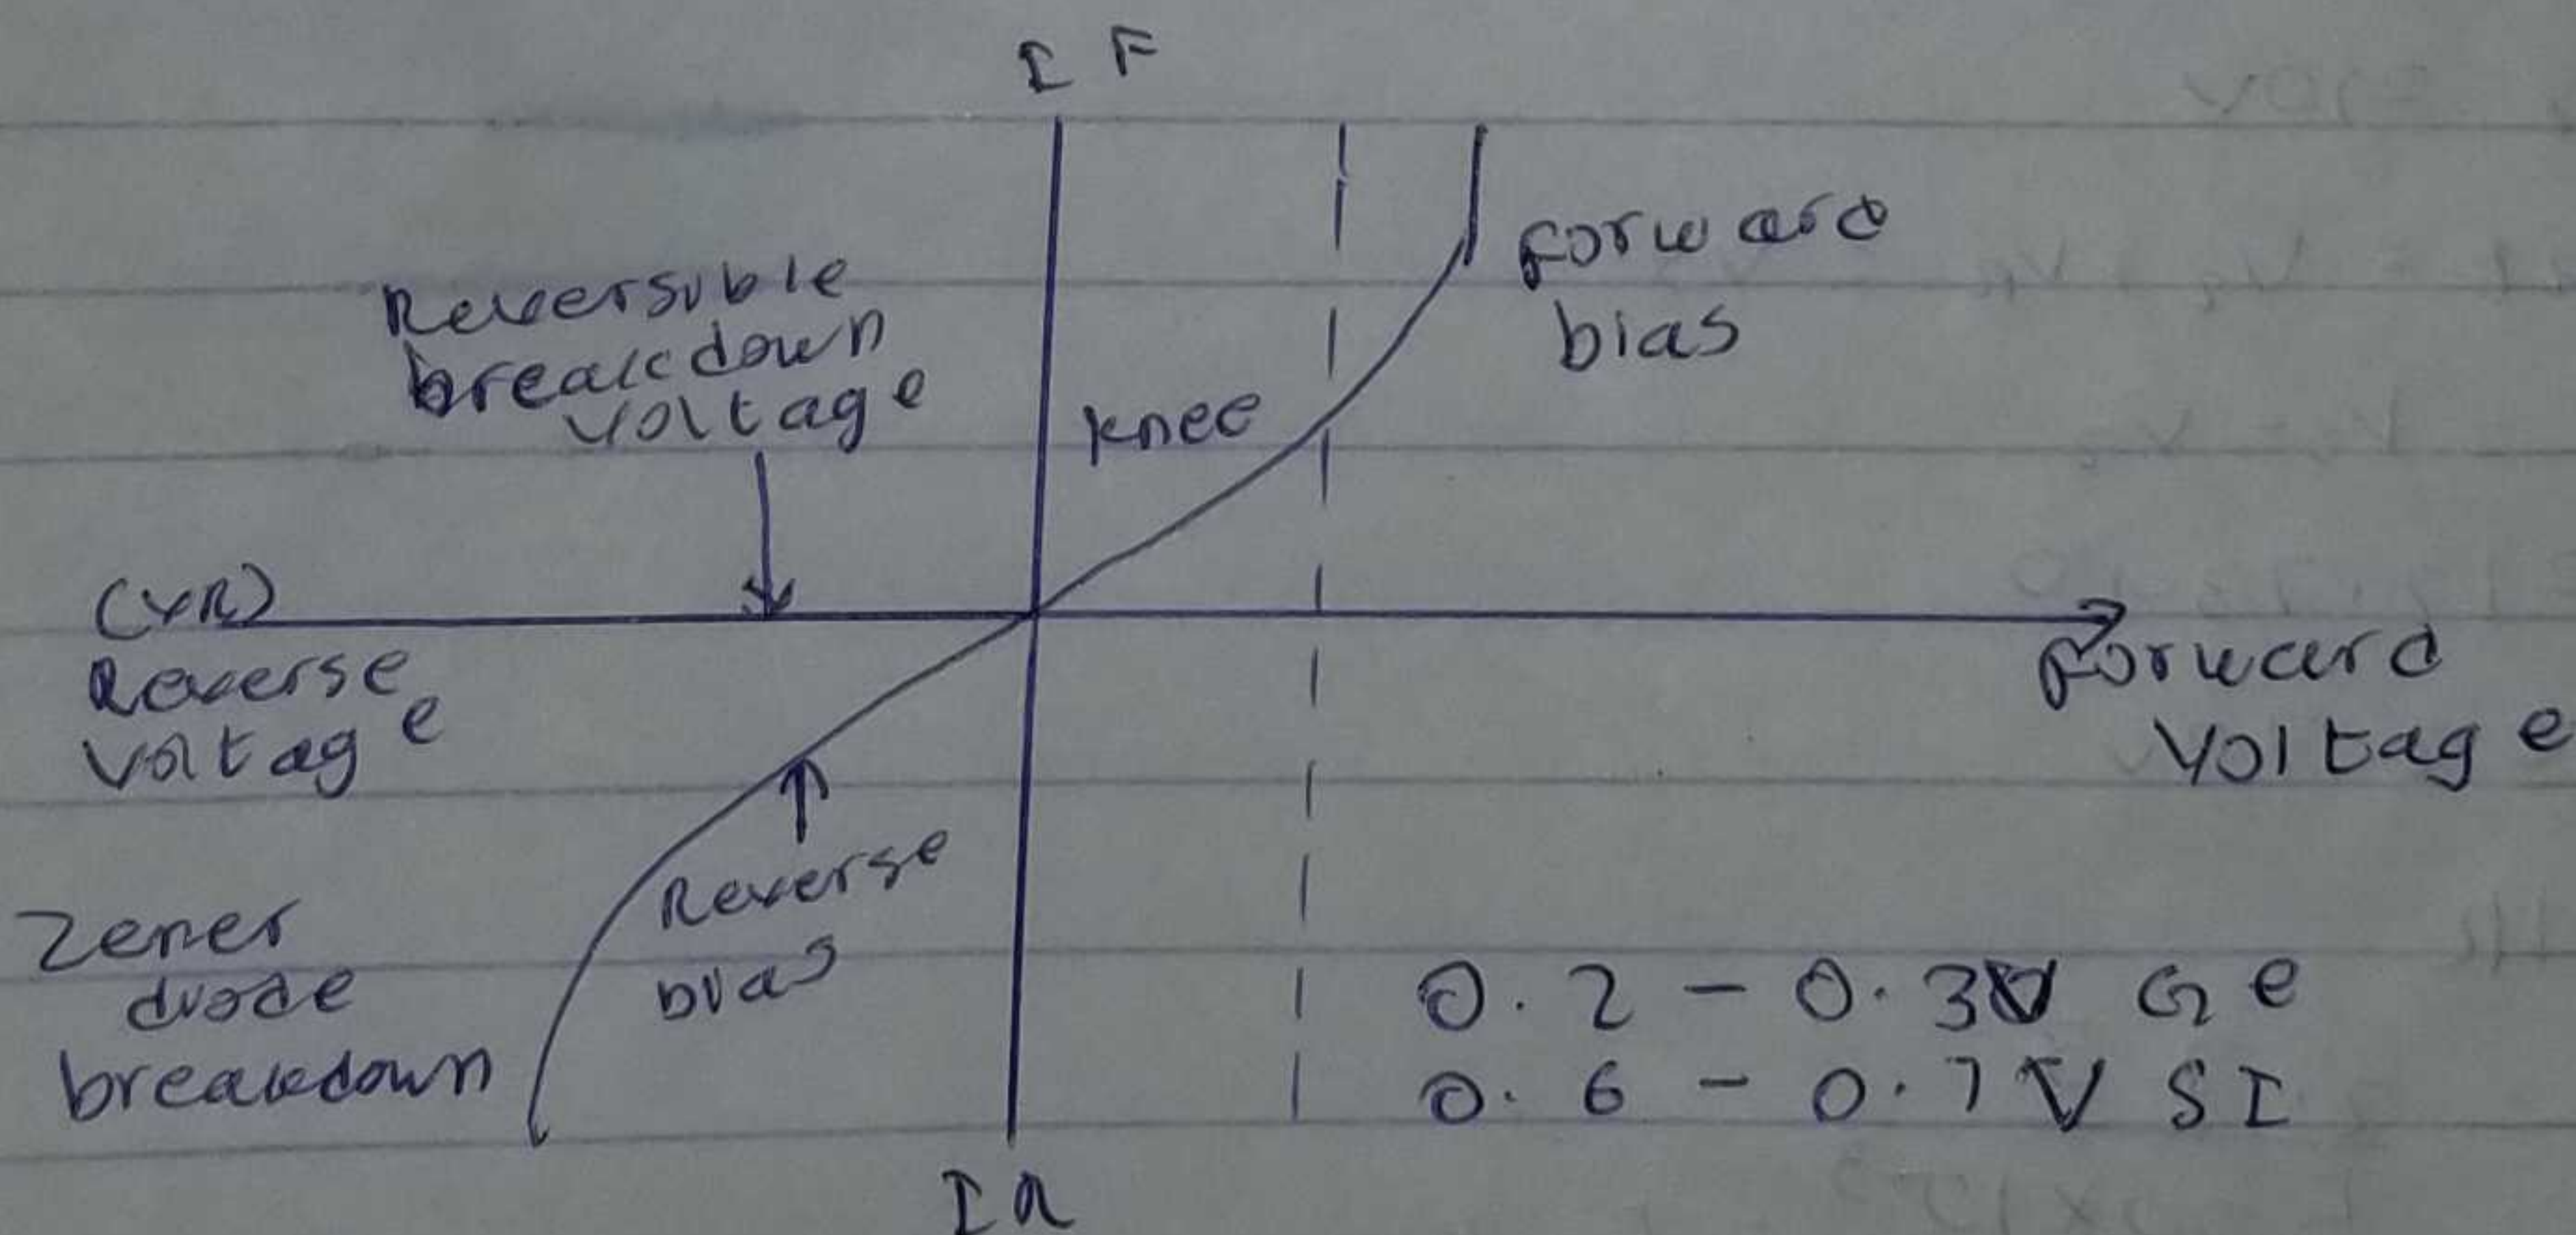 I F
Forward
bias
Reversible
breakdown
voltage
knee
(VR)
Reverse
voltage
Forward
Voltage
Reverse
bias
Zener
diode
breakdown
0.2 - 0.3V Ge
0.6 - 0.7V SI
IR